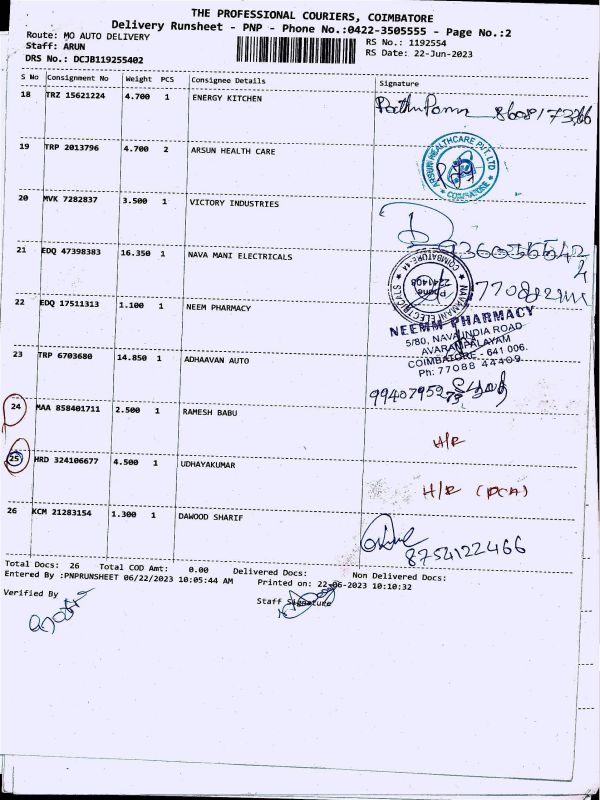 THE PROFESSIONAL COURIERS, COIMBATORE
Delivery Runsheet - PNP - Phone No.:0422-3505555 - Page No.:2
Route: MO AUTO DELIVERY
RS No.: 1192554
Staff: ARUN
RS Date: 22-Jun-2023
DRS No.: DCJB119255402
S No Consignment No Weight PCS Consignee Details Signature
18 TRZ 15621224 4.700 1 ENERGY KITCHEN
19 TRP 2013796 4.700 2 ARSUN HEALTH CARE
ARSUN HEALTHCARE PVT LTD
COIMBATORE
20 MVK 7282837 3.500 1 VICTORY INDUSTRIES
21 EDQ 47398383 16.350 1 NAVA MANI ELECTRICALS
NAVAMANI ELECTRICALS
COIMBATORE-44
Phone
2241408
22 EDQ 17511313 1.100 1 NEEM PHARMACY
NEEMM PHARMACY
5/80, NAVA INDIA ROAD
AVARAMPALAYAM
COIMBATORE - 641 006.
Ph: 77088 44409
23 TRP 6703680 14.850 1 ADHAAVAN AUTO
24 MAA 858401711 2.500 1 RAMESH BABU
H/R
25 HRD 324106677 4.500 1 UDHAYAKUMAR
H/R
26 KCM 21283154 1.300 1 DAWOOD SHARIF
8754122466
Total Docs: 26 Total COD Amt: 0.00 Delivered Docs: Non Delivered Docs:
Entered By :PNPRUNSHEET 06/22/2023 10:05:44 AM Printed on: 22-06-2023 10:10:32
Verified By
Staff Signature